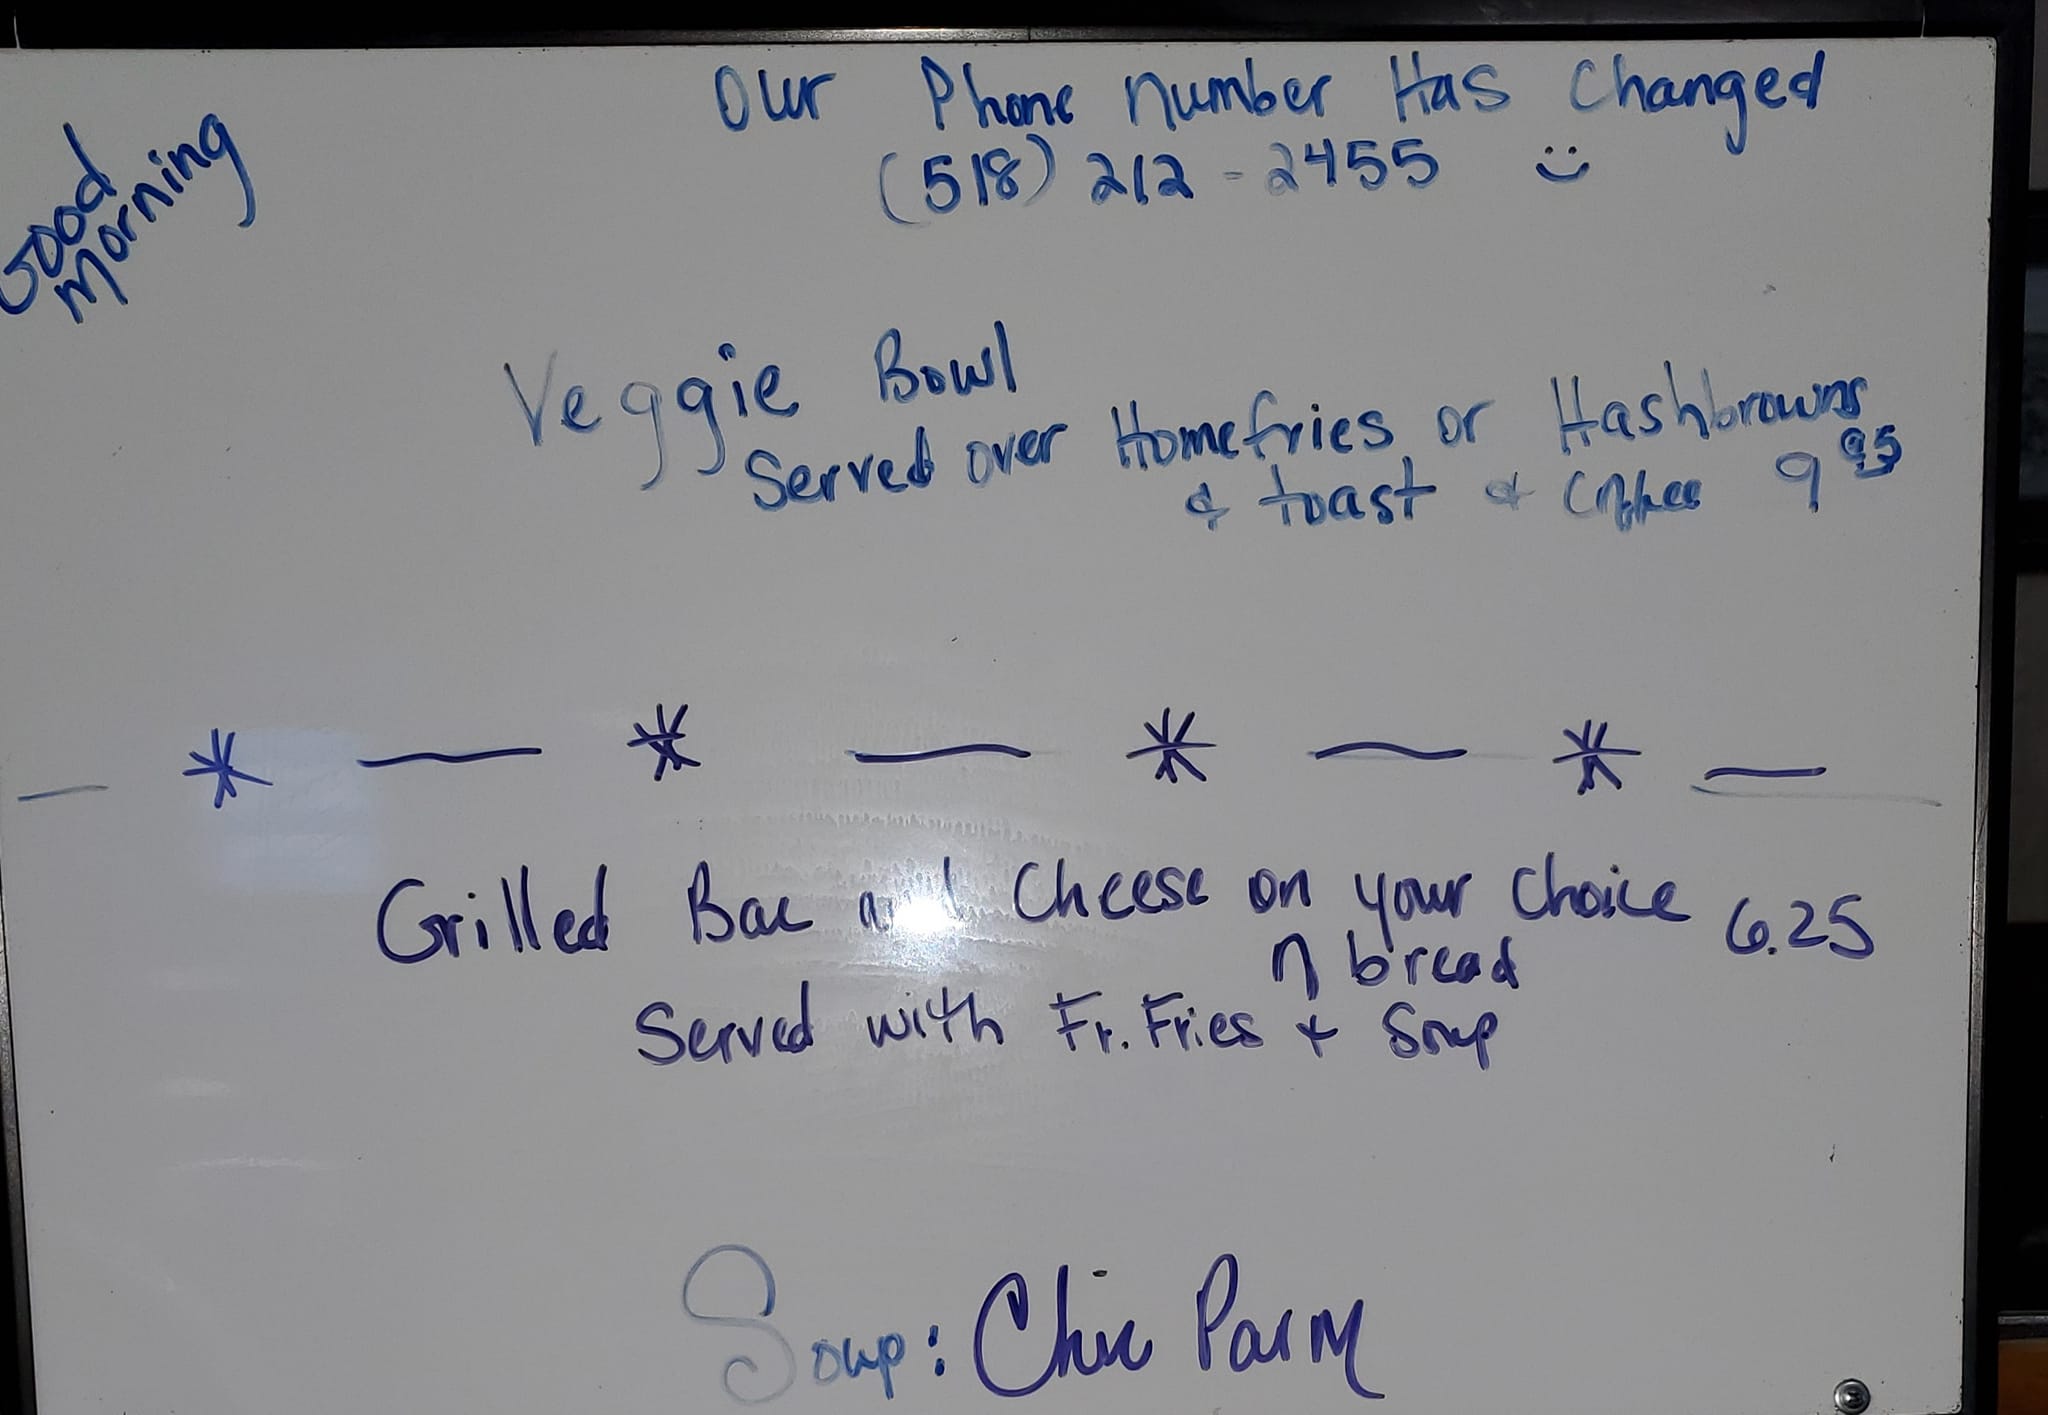 Good
Morning
Our Phone Number Has Changed
(518) 212-2455
Veggie Bowl
Served over Homefries or Hashbrowns
& toast & Coffee 9 95
Grilled Bac and Cheese on your Choice 6.25
bread
Served with Fr. Fries & Soup
Soup: Chic Parm